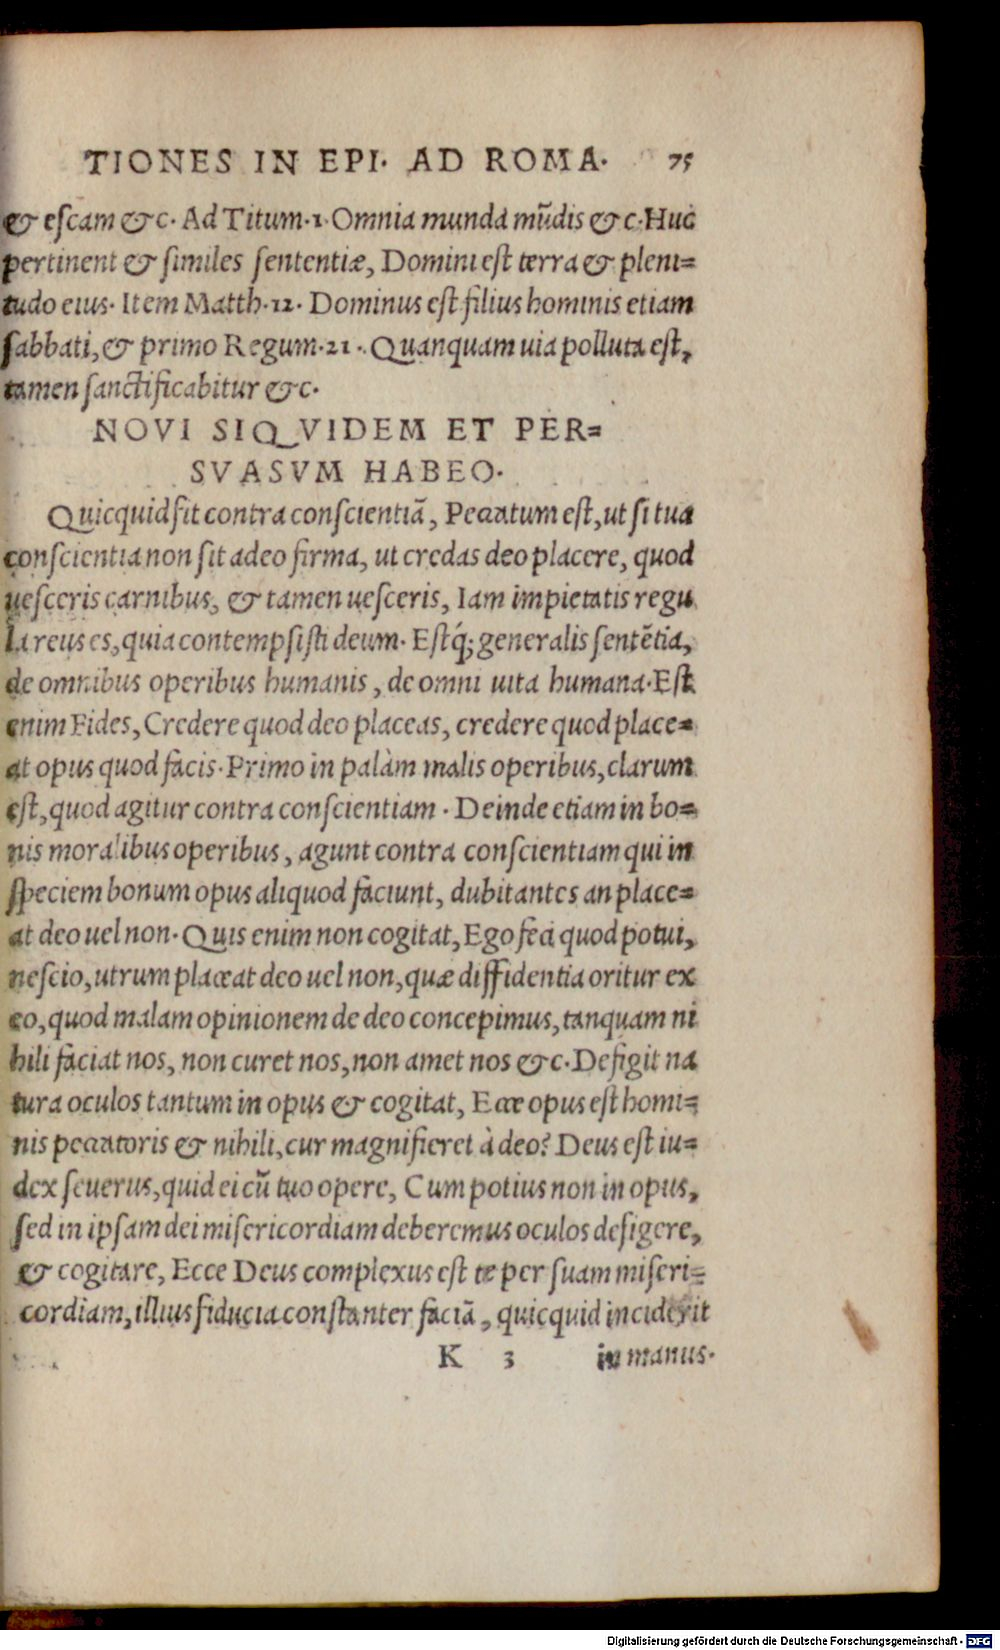 TIONES IN EPI. AD ROMA. 75
& escam &c. Ad Titum. 1. Omnia munda mūdis &c. Huc
pertinent & similes sententiæ, Domini est terra & pleni=
tudo eius. Item Matth. 12. Dominus est filius hominis etiam
sabbati, & primo Regum. 21. Quanquam uia polluta est,
tamen sanctificabitur &c.
NOVI SIQVIDEM ET PER=
SVASVM HABEO.
Quicquid fit contra conscientiā, Peccatum est, ut si tua
conscientia non sit adeo firma, ut credas deo placere, quod
uesceris carnibus, & tamen uesceris, Iam impietatis regu
la reus es, quia contempsisti deum. Estq́; generalis sentētia,
de omnibus operibus humanis, de omni uita humana. Est
enim Fides, Credere quod deo placeas, credere quod place=
at opus quod facis. Primo in palàm malis operibus, clarum
est, quod agitur contra conscientiam. Deinde etiam in bo=
nis moralibus operibus, agunt contra conscientiam qui in
speciem bonum opus aliquod faciunt, dubitantes an place=
at deo uel non. Quis enim non cogitat, Ego feci quod potui,
nescio, utrum placeat deo uel non, quæ diffidentia oritur ex
eo, quod malam opinionem de deo concepimus, tanquam ni
hili faciat nos, non curet nos, non amet nos &c. Defigit na
tura oculos tantum in opus & cogitat, Ecce opus est homi=
nis peccatoris & nihili, cur magnifieret à deo? Deus est iu=
dex seuerus, quid ei cū tuo opere, Cum potius non in opus,
sed in ipsam dei misericordiam deberemus oculos defigere,
& cogitare, Ecce Deus complexus est te per suam miseri=
cordiam, illius fiducia constanter faciā, quicquid inciderit
K 3 in manus.
Digitalisierung gefördert durch die Deutsche Forschungsgemeinschaft - DFG